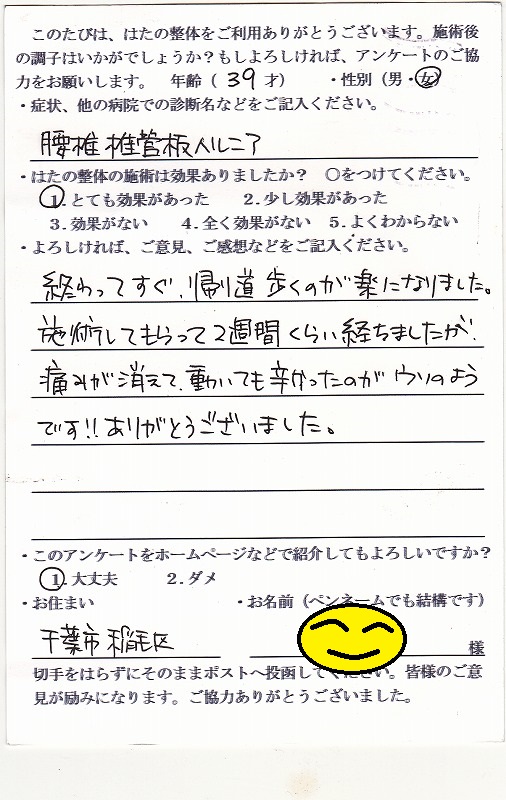 このたびは、はたの整体をご利用ありがとうございます。施術後
の調子はいかがでしょうか？もしよろしければ、アンケートのご協
力をお願いします。　年齢（ 39 才）　・性別（男・女）
・症状、他の病院での診断名などをご記入ください。
腰椎椎管板ヘルニア
・はたの整体の施術は効果ありましたか？　○をつけてください。
1.とても効果があった　　2.少し効果があった
3.効果がない　　4.全く効果がない　5.よくわからない
・よろしければ、ご意見、ご感想などをご記入ください。
終わってすぐ、帰り道 歩くのが楽になりました。
施術してもらって2週間くらい経ちましたが、
痛みが消えて、動いても辛かったのがウソのよう
です!!ありがとうございました。
・このアンケートをホームページなどで紹介してもよろしいですか？
1.大丈夫　　　2.ダメ
・お住まい　　　　　　　　・お名前（ペンネームでも結構です）
千葉市稲毛区　　　　　　　　　　　　　　様
切手をはらずにそのままポストへ投函してください。皆様のご意
見が励みになります。ご協力ありがとうございました。